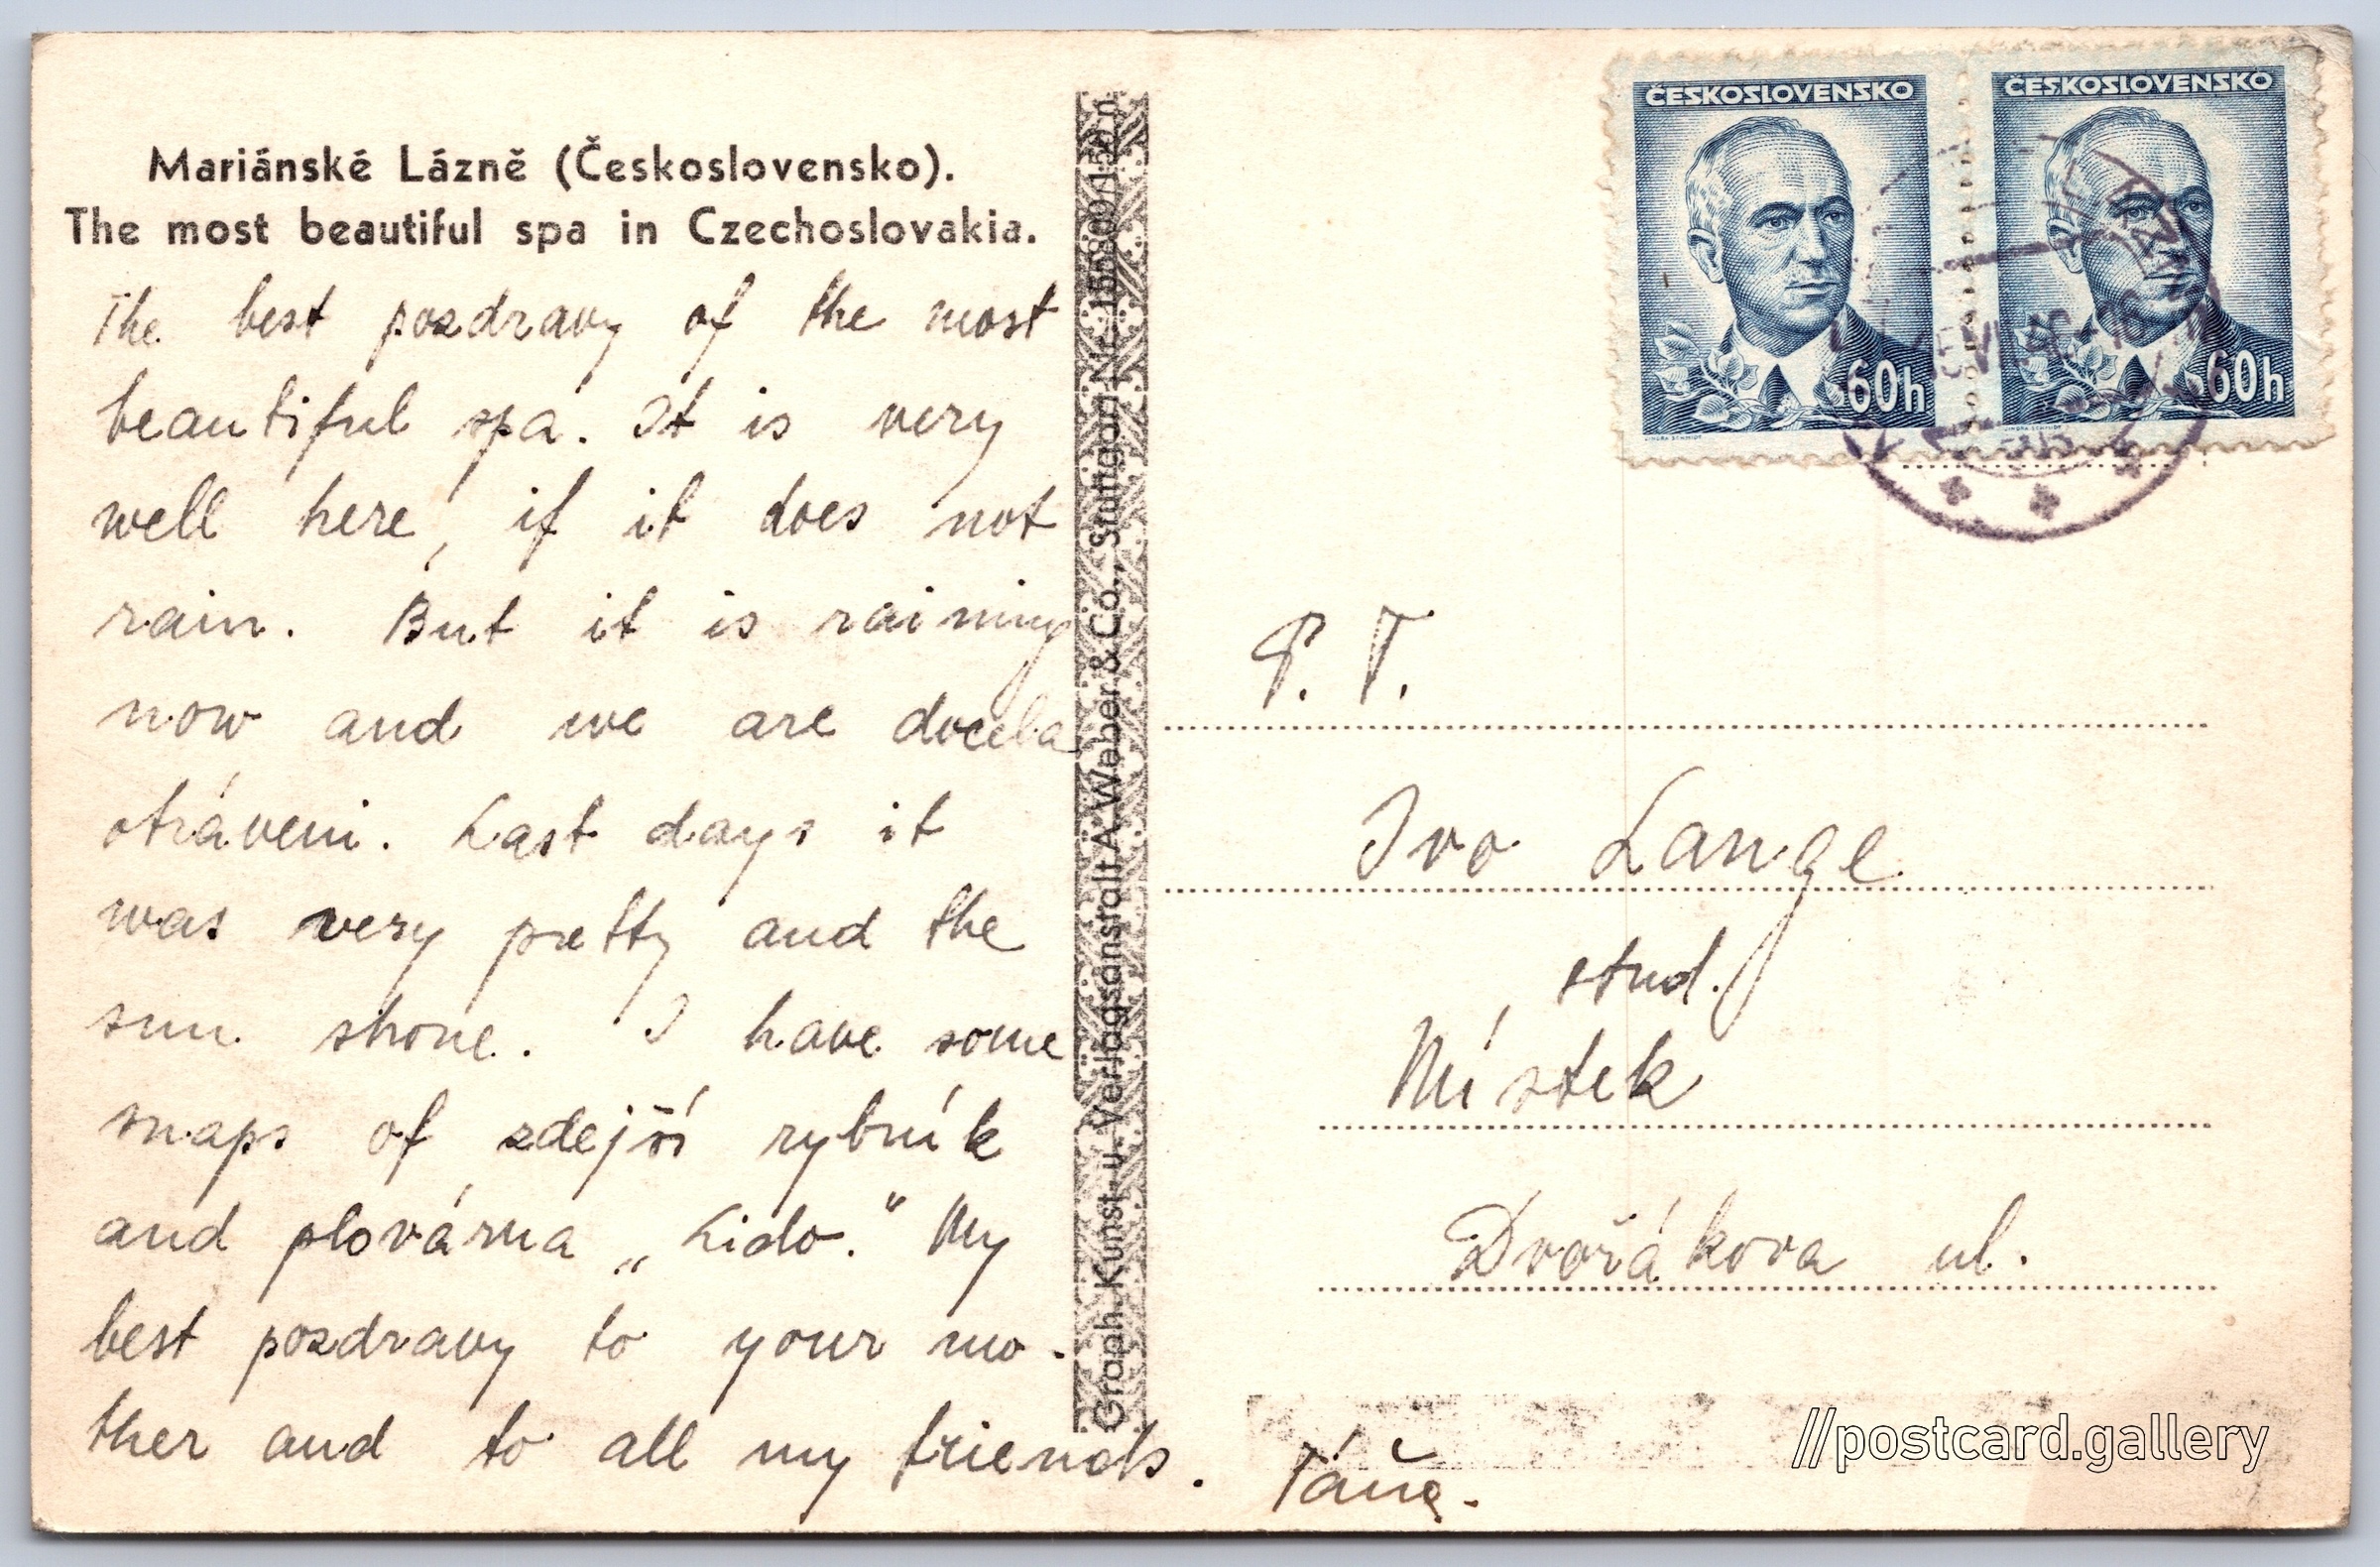 Mariánské Lázně (Československo).
The most beautiful spa in Czechoslovakia.
The best pozdravy of the most
beautiful spa. It is very
well here, if it does not
rain. But it is raining
now and we are docela
otráveni. Last days it
was very pretty and the
sun shone. I have some
snaps of zdejší rybník
and plovárna „Lido." My
best pozdravy to your mo-
ther and to all my friends.
Táňa.
Graph. Kunst- u. Verlagsanstalt A. Weber & Co., Stuttgart Nr.
ČESKOSLOVENSKO
60h
JINDRA SCHMIDT
ČESKOSLOVENSKO
60h
JINDRA SCHMIDT
P. T.
Ivo Lange
stud.
Místek
Dvořákova ul.
//postcard.gallery